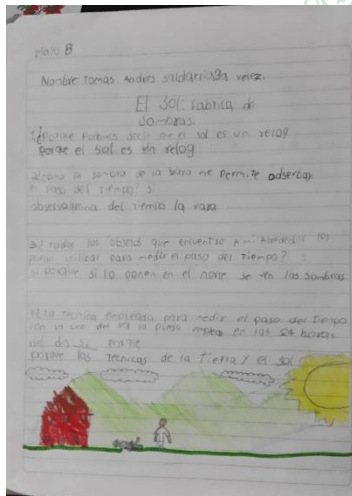 Mayo 8
Nombre: Tomas Andres saldarriaga
El Sol: fabrica de
sombras
1¿Porque Podemos decir que el sol es un relog
Porqe el sol es un relog
2¿como la sombra de la vara me Permite adserbar
el Paso del Tiempo?
del Tiempo la vara
3¿Todos los que encuentro a mi Alrededor los
puedo utilizar para medir el paso del Tiempo?
si porque si lo ponen en el norte se ven las sombras
4¿La Tecnica empleada para medir el paso del Tiempo
con la luz del sol la puedo emplear en las 24 horas
del dia si porqe
porqe las Tecnicas de la Tierra y el sol